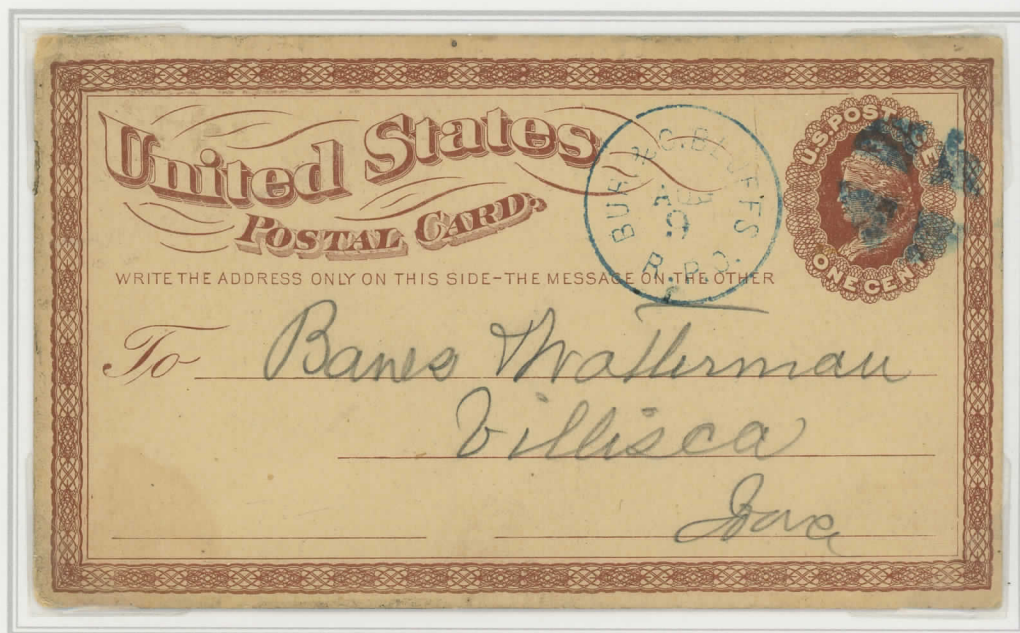 United States
POSTAL CARD.
WRITE THE ADDRESS ONLY ON THIS SIDE-THE MESSAGE ON THE OTHER
BURL & C. BLUFFS
AUG
9
R.P.O.
U.S. POST
ONE CENT
To
Banes
Villisca
Iowa